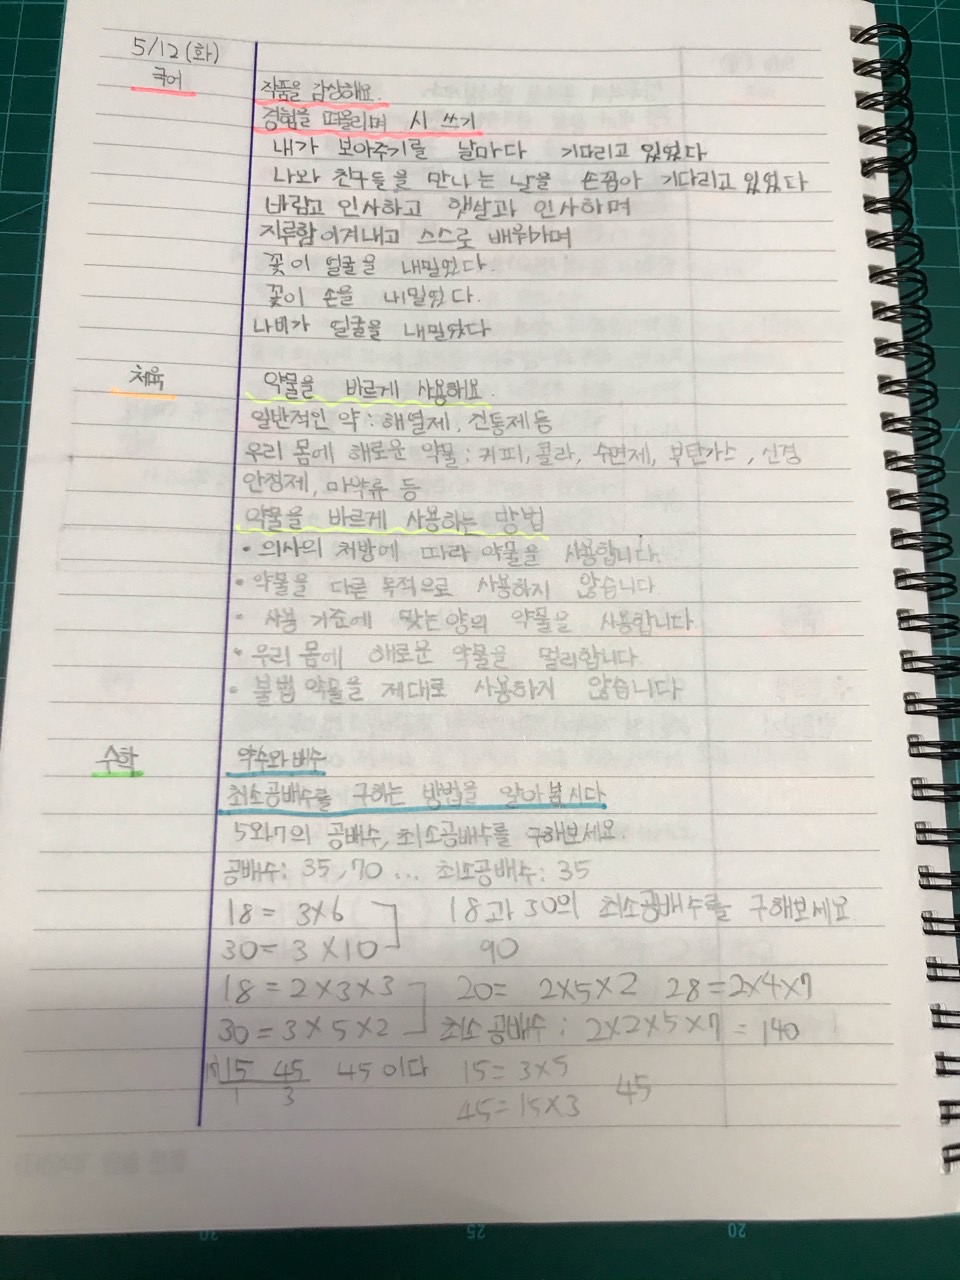 5/12 (화)
국어
작품을 감상해요.
경험을 떠올리며 시 쓰기
내가 보아주기를 날마다 기다리고 있었다
나와 친구들을 만나는 날을 손꼽아 기다리고 있었다
바람과 인사하고 햇살과 인사하며
지루함 이겨내고 스스로 배워가며
꽃이 얼굴을 내밀었다.
꽃이 손을 내밀었다.
나비가 얼굴을 내밀었다
체육
약물을 바르게 사용해요.
일반적인 약 : 해열제, 진통제 등
우리 몸에 해로운 약물 : 커피, 콜라, 수면제, 부탄가스, 신경
안정제, 마약류 등
약물을 바르게 사용하는 방법
• 의사의 처방에 따라 약물을 사용합니다.
• 약물을 다른 목적으로 사용하지 않습니다.
• 사용 기준에 맞는 양의 약물을 사용합니다.
• 우리 몸에 해로운 약물을 멀리합니다.
• 불법 약물을 제대로 사용하지 않습니다
수학
약수와 배수
최소공배수를 구하는 방법을 알아봅시다
5와 7의 공배수, 최소공배수를 구해보세요.
공배수: 35, 70 ... 최소공배수: 35
18 = 3×6 18과 30의 최소공배수를 구해보세요
30 = 3×10 90
18 = 2×3×3 20 = 2×5×2 28=2×4×7
30 = 3×5×2 최소공배수 : 2×2×5×7 = 140
15 45 45이다 15=3×5
1 3 45=15×3 45